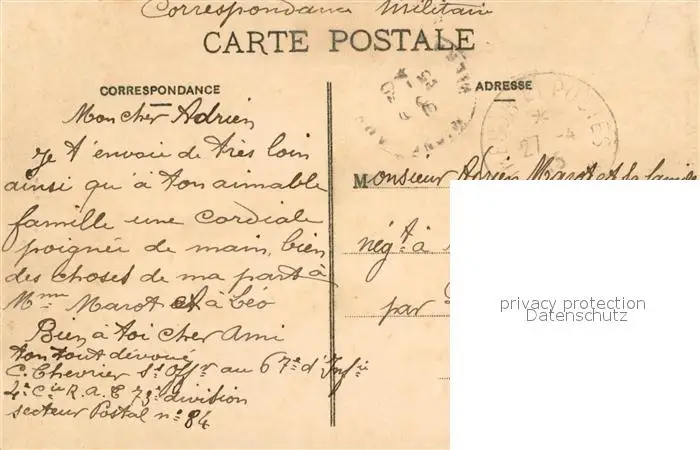 Correspondance Militaire
CARTE POSTALE
CORRESPONDANCE
ADRESSE
Mon cher Adrien
Je t'envoie de très loin
ainsi qu'à ton aimable
famille une cordiale
poignée de main, bien
des choses de ma part à
Mme Marot et à Léo
Bien à toi cher Ami
ton tout dévoué
C. Chevrier St Offr au 67e d'Infie
4e Cie R.A.T 73e division
secteur Postal no 84
Monsieur Adrien Marot et sa famille
négt à
par
POSTES
27 -4
privacy protection
Datenschutz